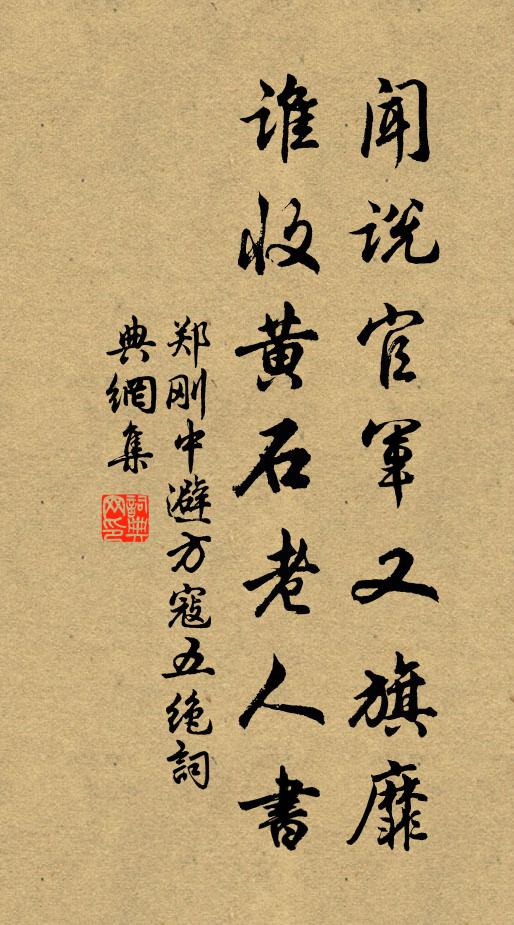 闻说官军又旗靡
谁收黄石老人书
郑刚中避方寇五绝詞
典網集
詞典网印